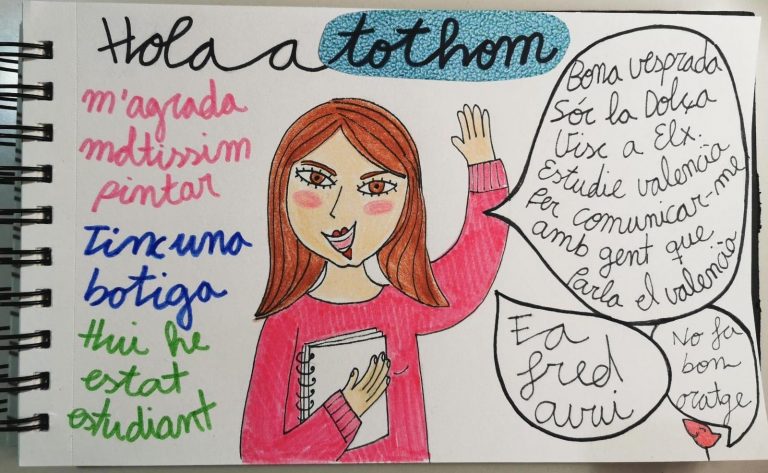 Hola a tothom
m'agrada
moltissim
pintar
Tinc una
botiga
Hui he
estat
estudiant
Bona vesprada
Sóc la Dolça
Visc a Elx.
Estudie valencià
Per comunicar-me
amb gent que
parla el valencià
Fa
fred
avui
No fa
bon
oratge